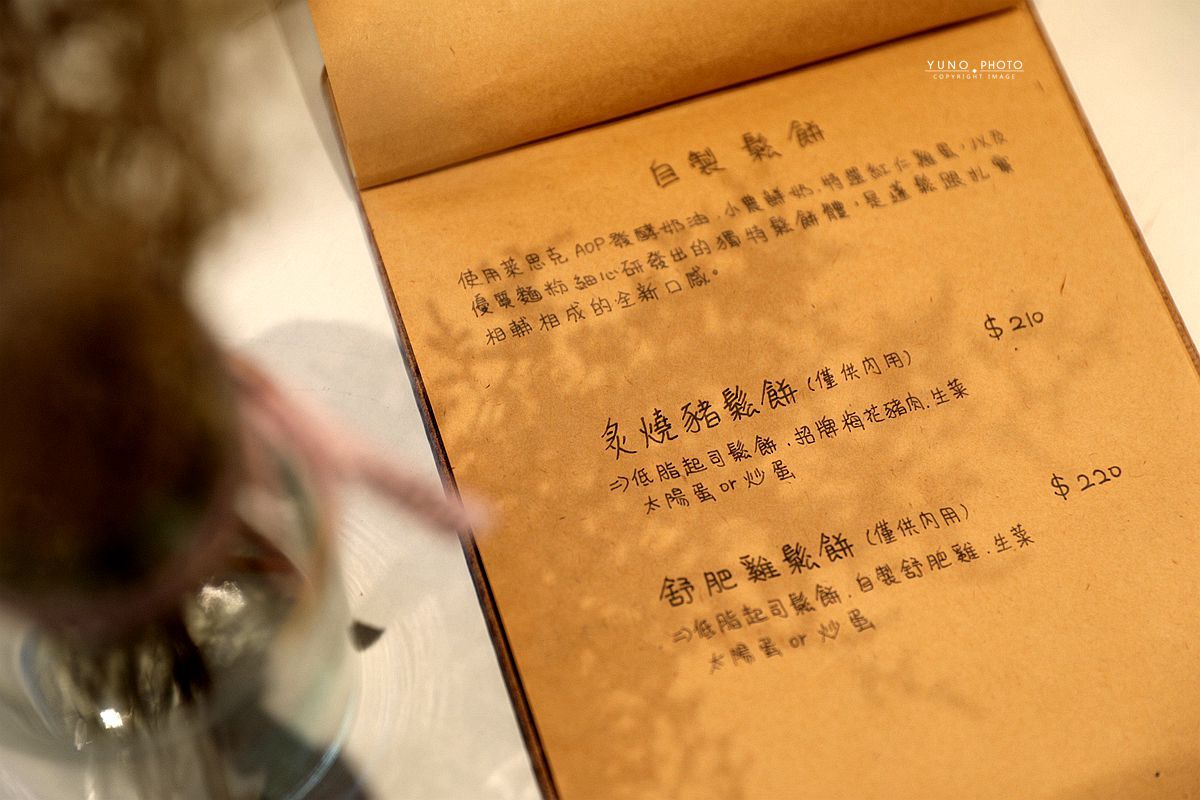 YUNO PHOTO
COPYRIGHT IMAGE
自製 鬆餅
使用萊思克 AOP發酵奶油.小農鮮奶.特選紅仁雞蛋,以及
優質麵粉細心研發出的獨特鬆餅體,是蓬鬆跟扎實
相輔相成的全新口感。
$210
炙燒豬鬆餅(僅供內用)
⇒低脂起司鬆餅.招牌梅花豬肉.生菜
太陽蛋or炒蛋
$220
舒肥雞鬆餅(僅供內用)
⇒低脂起司鬆餅.自製舒肥雞.生菜
太陽蛋or炒蛋